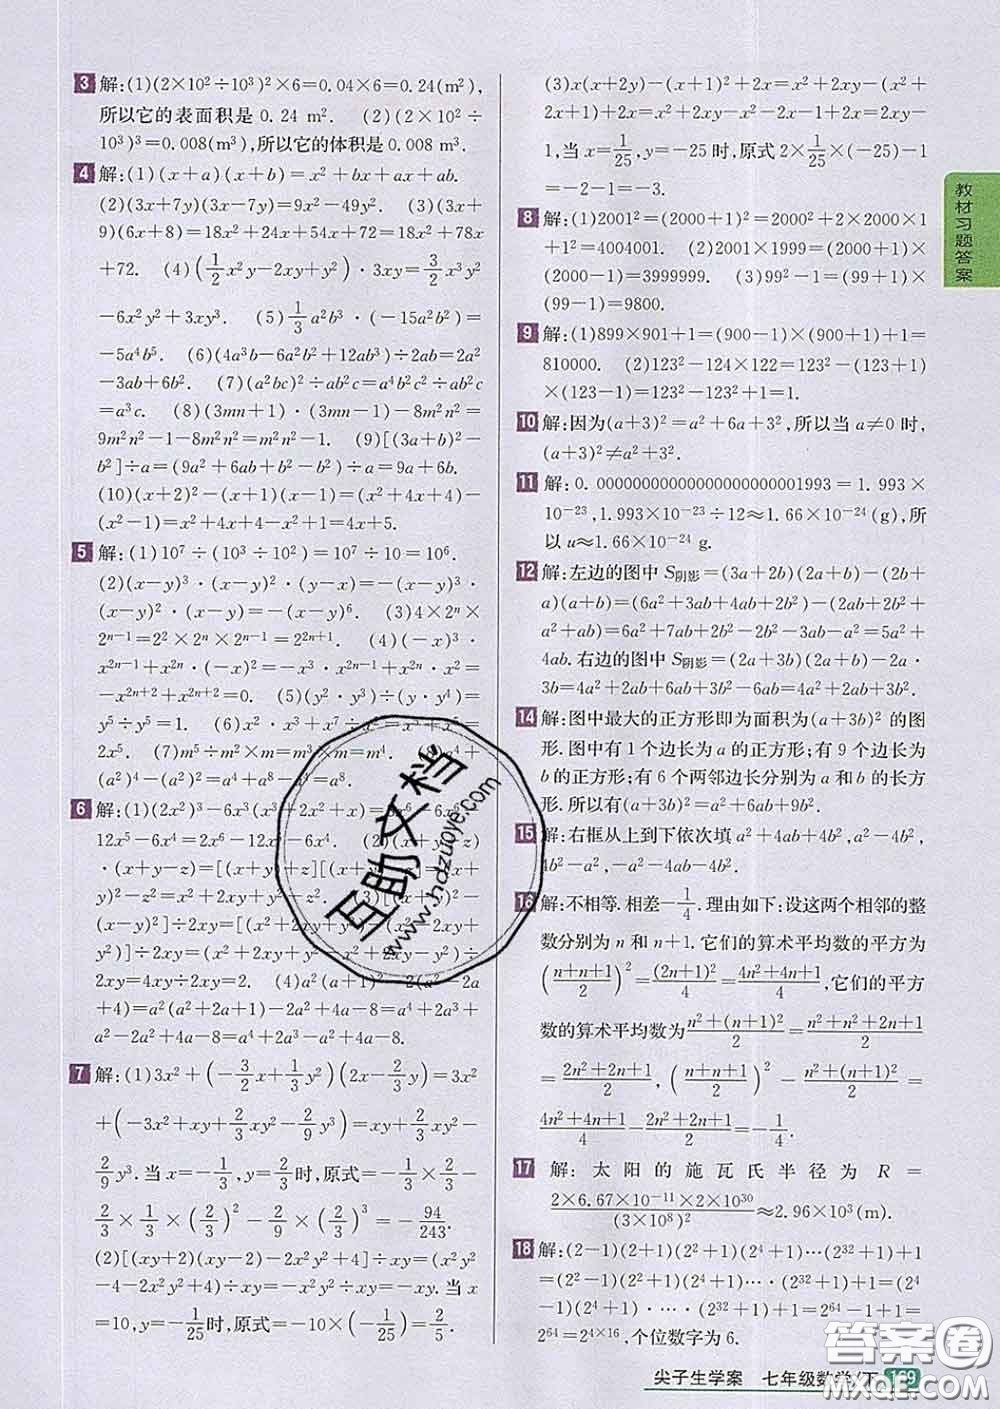 3 解:(1)(2×10²÷10³)²×6=0.04×6=0.24(m²),
所以它的表面积是 0.24 m². (2)(2×10²÷
10³)³=0.008(m³),所以它的体积是 0.008 m³.
4 解:(1)(x+a)(x+b)=x²+bx+ax+ab.
(2)(3x+7y)(3x-7y)=9x²-49y². (3)(3x+
9)(6x+8)=18x²+24x+54x+72=18x²+78x
+72. (4)(1/2x²y-2xy+y²)·3xy=3/2x³y²
-6x²y²+3xy³. (5)1/3a²b³·(-15a²b²)=
-5a⁴b⁵. (6)(4a³b-6a²b²+12ab³)÷2ab=2a²
-3ab+6b². (7)(a²bc)²÷ab²c=a⁴b²c²÷ab²c
=a³c. (8)(3mn+1)·(3mn-1)-8m²n²=
9m²n²-1-8m²n²=m²n²-1. (9)[(3a+b)²-
b²]÷a=(9a²+6ab+b²-b²)÷a=9a+6b.
(10)(x+2)²-(x+1)(x-1)=(x²+4x+4)-
(x²-1)=x²+4x+4-x²+1=4x+5.
5 解:(1)10⁷÷(10³÷10²)=10⁷÷10=10⁶.
(2)(x-y)³·(x-y)²·(y-x)=-(x-y)³·
(x-y)²·(x-y)=-(x-y)⁶. (3)4×2ⁿ×
2ⁿ⁻¹=2²×2ⁿ×2ⁿ⁻¹=2²ⁿ⁺¹. (4)(-x)³·
x²ⁿ⁻¹+x²ⁿ·(-x)²=-x³·x²ⁿ⁻¹+x²ⁿ·x²=
-x²ⁿ⁺²+x²ⁿ⁺²=0. (5)(y²·y³)÷(y·y⁴)=
y⁵÷y⁵=1. (6)x²·x³+x⁷÷x²=
2x⁵. (7)m⁵÷m²×m=m³×m=m⁴.
(a²)⁴=a⁸
6 解:(1)(2x²)³-6x³(x³+2x²+x)=
12x⁵-6x⁴=2x⁶-12x⁵-6x⁴.
·(x+y-z)=[(x+y)+z][(x+y)-z]=
4xy=4xy÷2xy=2.
+4)=a²(a²+2a+1)-2a²+4a-8=a⁴+2a³+
a²-2a²+4a-8=a⁴+2a³-a²+4a-8.
7 解:(1)3x²+(-3/2x+1/3y²)(2x-2/3y)=3x²
+(-3x²+xy+2/3xy²-2/9y³)=xy+2/3xy²-
2/9y³.当 x=-1/3,y=2/3时,原式=-1/3×2/3-
2/3×1/3×(2/3)²-2/9×(2/3)³=-94/243.
(2)[(xy+2)(xy-2)-2x²y²+4]÷xy=(x²y²
-4-2x²y²+4)÷xy=-x²y²÷xy=-xy.当 x
=10,y=-1/25时,原式=-10×(-1/25)=2/5.
(3)x(x+2y)-(x+1)²+2x=x²+2xy-(x²+
2x+1)+2x=x²+2xy-x²-2x-1+2x=2xy-
1,当 x=1/25,y=-25时,原式2×1/25×(-25)-1
=-2-1=-3.
8 解:(1)2001²=(2000+1)²=2000²+2×2000×1
+1²=4004001. (2)2001×1999=(2000+1)×
(2000-1)=3999999. (3)99²-1=(99+1)×
(99-1)=9800.
9 解:(1)899×901+1=(900-1)×(900+1)+1=
810000. (2)123²-124×122=123²-(123+1)
×(123-1)=123²-123²+1=1.
10 解:因为(a+3)²=a²+6a+3²,所以当 a≠0 时,
(a+3)²≠a²+3².
11 解:0.00000000000000000000001993=1.993×
10⁻²³,1.993×10⁻²³÷12≈1.66×10⁻²⁴(g),所
以 u≈1.66×10⁻²⁴ g.
12 解:左边的图中 S阴影=(3a+2b)(2a+b)-(2b+
a)(a+b)=(6a²+3ab+4ab+2b²)-(2ab+2b²+
a²+ab)=6a²+7ab+2b²-2b²-3ab-a²=5a²+
4ab.右边的图中 S阴影=(2a+3b)(2a+b)-2a·
3b=4a²+2ab+6ab+3b²-6ab=4a²+2ab+3b².
14 解:图中最大的正方形即为面积为(a+3b)²的图
形.图中有 1 个边长为 a 的正方形;有 9 个边长为
b 的正方形;有 6 个两邻边长分别为 a 和 b 的长方
形.所以有(a+3b)²=a²+6ab+9b².
15 解:右框从上到下依次填 a²+4ab+4b²,a²-4b²,
4b²-a²,-a²-4ab-4b².
16 解:不相等.相差-1/4.理由如下:设这两个相邻的整
数分别为 n 和 n+1.它们的算术平均数的平方为
((n+n+1)/2)²=(2n+1)²/4=(4n²+4n+1)/4,它们的平方
数的算术平均数为(n²+(n+1)²)/2=(n²+n²+2n+1)/2
=(2n²+2n+1)/2,((n+n+1)/2)²-(n²+(n+1)²)/2=
(4n²+4n+1)/4-(2n²+2n+1)/2=-1/4.
17 解:太阳的施瓦氏半径为 R=
(2×6.67×10⁻¹¹×2×10³⁰)/(3×10⁸)²≈2.96×10³(m).
18 解:(2-1)(2+1)(2²+1)(2⁴+1)…(2³²+1)+1
=(2²-1)(2²+1)(2⁴+1)…·(2³²+1)+1=(2⁴
-1)(2⁴+1)·…·(2³²+1)+1=2⁶⁴-1+1=
2⁶⁴=2⁴ˣ¹⁶,个位数字为 6.
教材习题答案
互助文档
www.hdzuoye.com
尖子生学案 七年级数学/下 169
答案圈
MXQE.COM